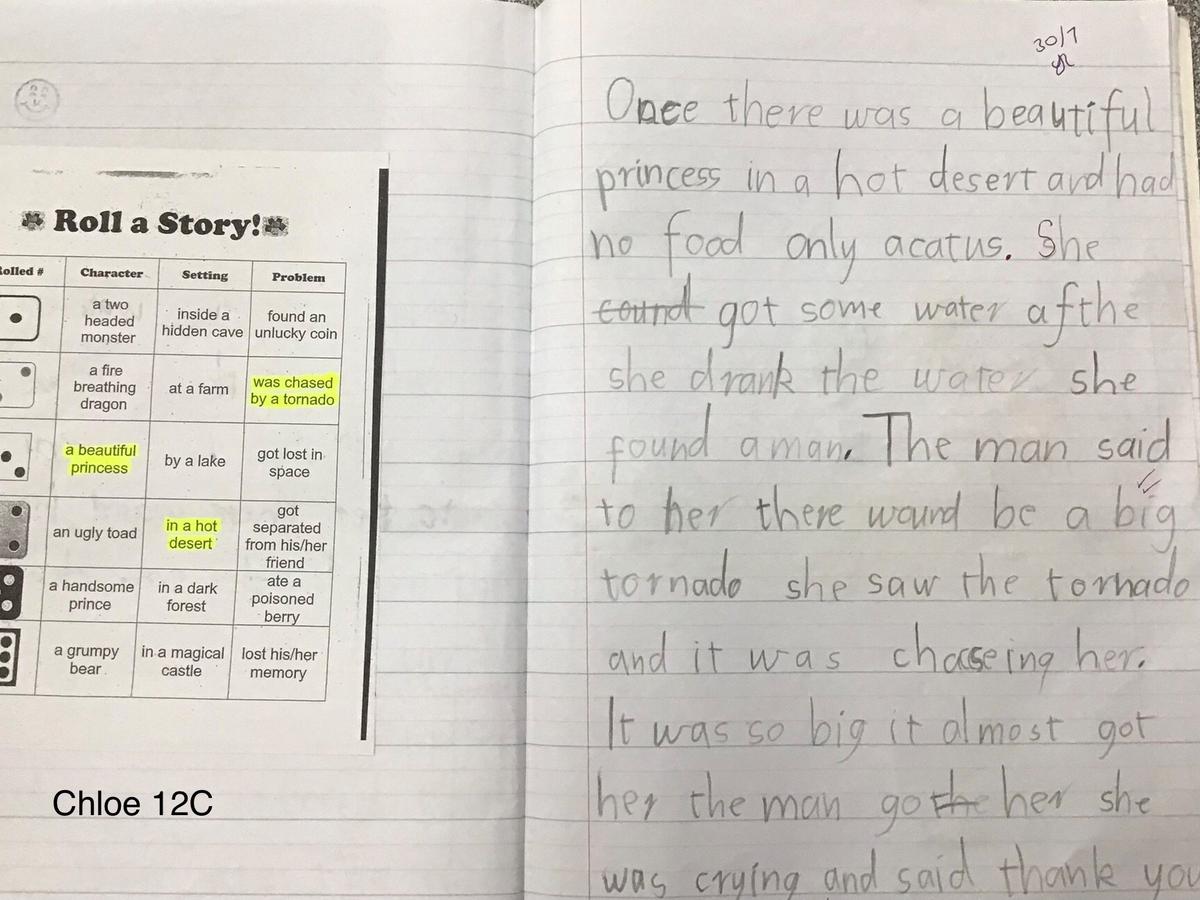 Roll a Story!
Rolled # Character Setting Problem
a two headed monster inside a hidden cave found an unlucky coin
a fire breathing dragon at a farm was chased by a tornado
a beautiful princess by a lake got lost in space
an ugly toad in a hot desert got separated from his/her friend
a handsome prince in a dark forest ate a poisoned berry
a grumpy bear in a magical castle lost his/her memory
Chloe 12C
30/7
Once there was a beautiful
princess in a hot desert and had
no food only acatus. She
cound got some water afthe
she drank the water she
found a man. The man said
to her there wound be a big
tornado she saw the tornado
and it was chaseing her.
It was so big it almost got
her the man gothe her she
was crying and said thank you